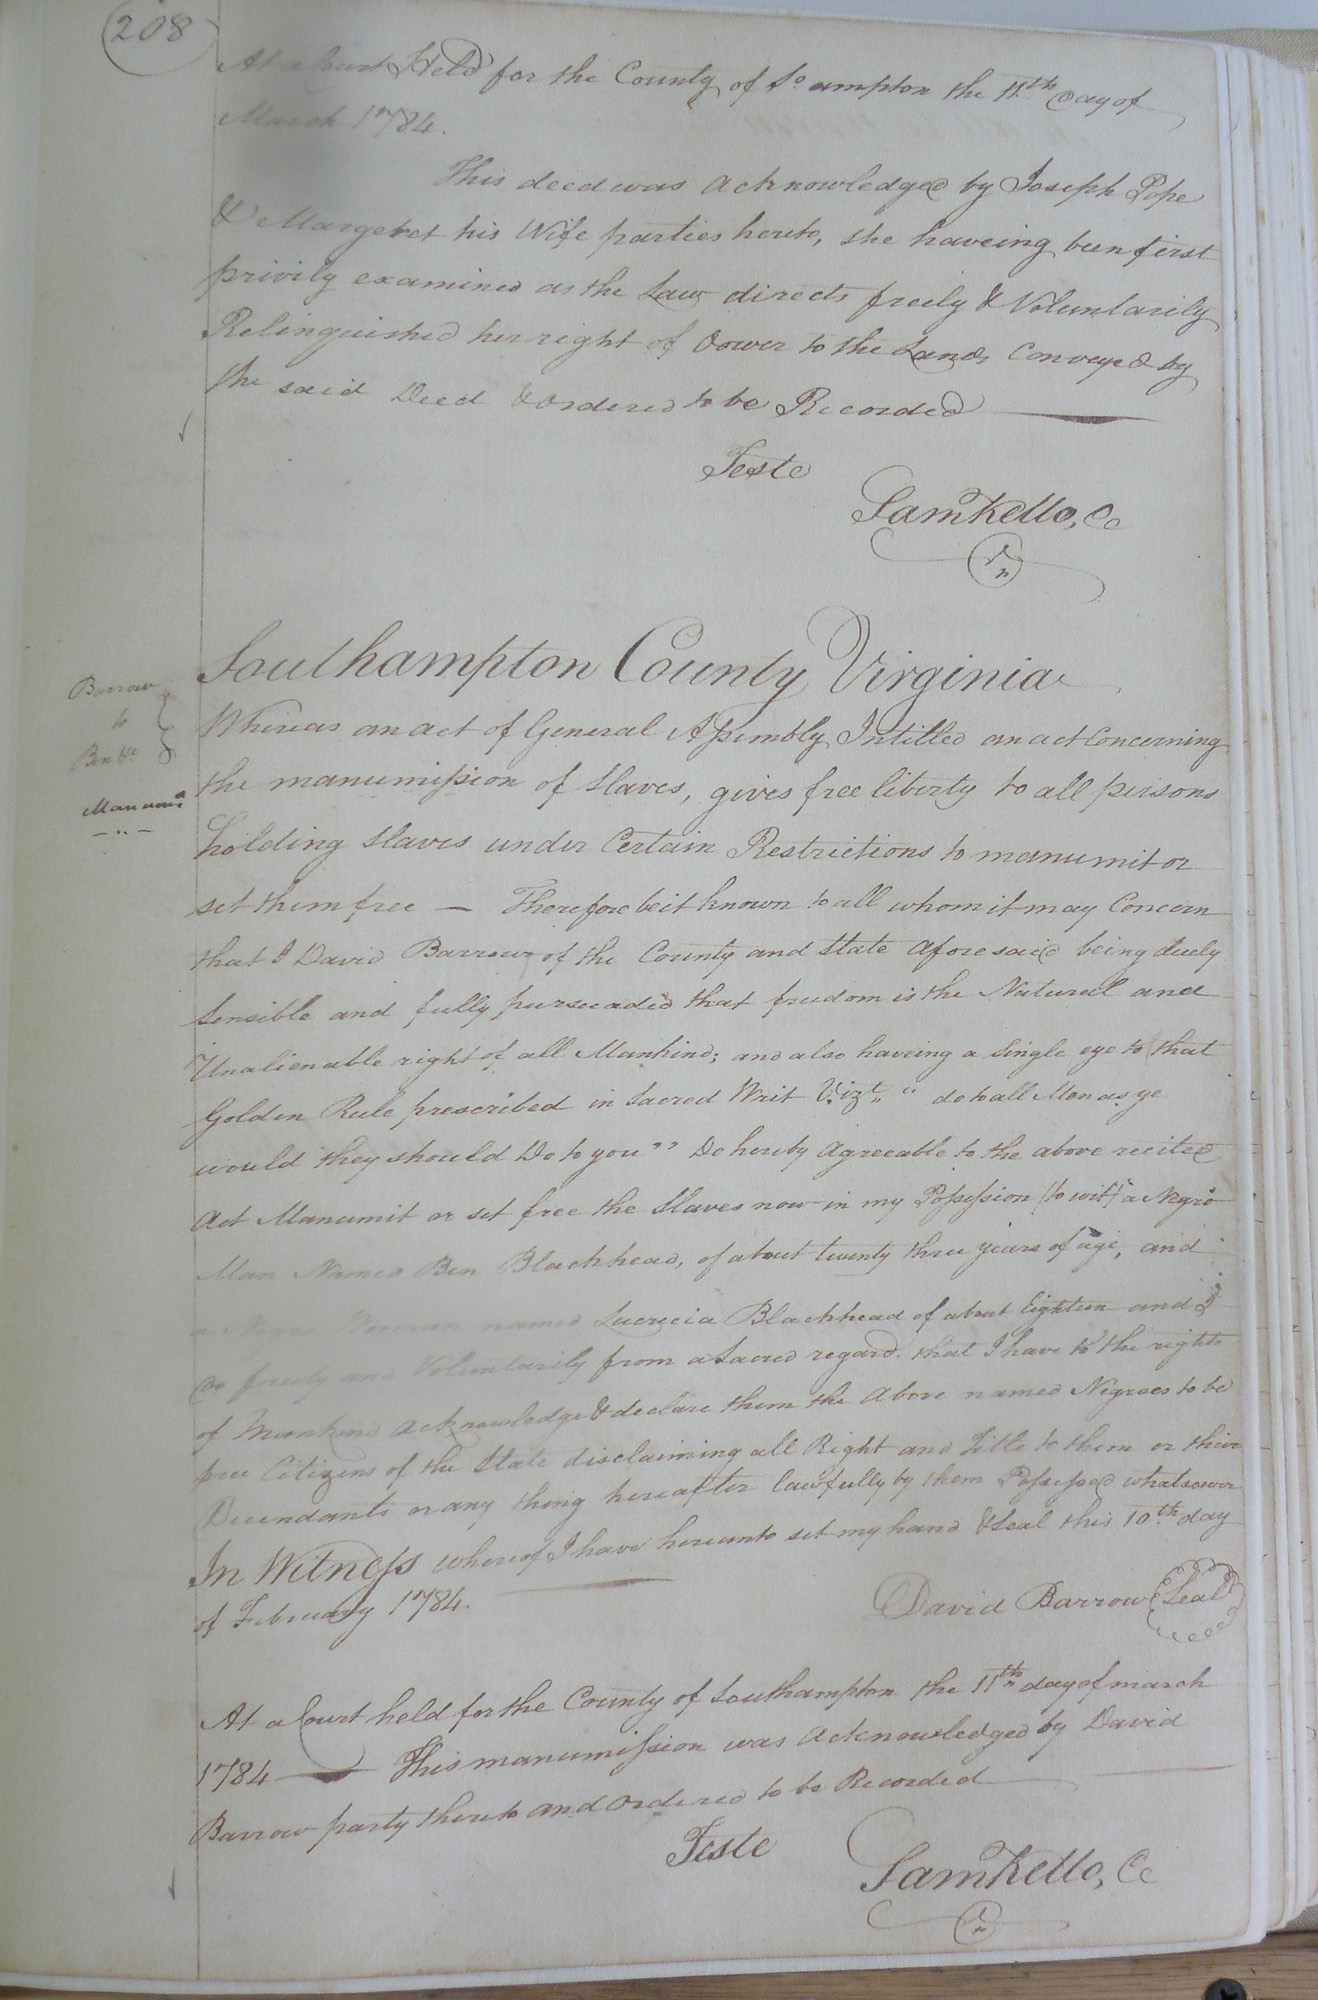 208
At a Court Held for the County of So ampton the 11th Day of
March 1784.
This deed was acknowledged by Joseph Pope
& Margeret his Wife parties hereto, she haveing been first
privily examined as the Law directs freely & Voluntarily
Relinquished her right of Dower to the Lands Conveyed by
the said Deed & ordered to be Recorded
Teste
Sam Kello, Cc
Southampton County Virginia
Barrow
to
Ben &c
Manumn
Whereas an act of General Assembly Intitled an act Concerning
the manumission of slaves, gives free liberty to all persons
holding slaves under Certain Restrictions to manumit or
set them free — Therefore be it known to all whom it may Concern
that I David Barrow of the County and State aforesaid being duely
Sensible and fully pursuaded that freedom is the Natural and
Unalienable right of all Mankind; and also haveing a Single eye to that
Golden Rule prescribed in Sacred Writ Vizt,, " do to all Men as ye
would they should Do to you" Do hereby agreeable to the above recited
Act Manumit or set free the Slaves now in my Possession (to wit) a Negro
Man Named Ben Blackhead, of about twenty three years of age, and
a Negro Woman named Lucrecia Blackhead of about Eighteen and I
do freely and Voluntarily from a Sacred regard that I have to the rights
of Mankind acknowledge & declare them the above named Negroes to be
free Citizens of the State disclaiming all Right and Title to them or their
Decendants or any thing hereafter lawfully by them Possessed whatsoever
In Witness whereof I have hereunto set my hand & Seal this 10th day
of February 1784.
David Barrow Seal
At a Court held for the County of Southampton the 11th day of march
1784 — This manumission was acknowledged by David
Barrow party thereto and ordered to be Recorded
Teste
Sam Kello, Cc